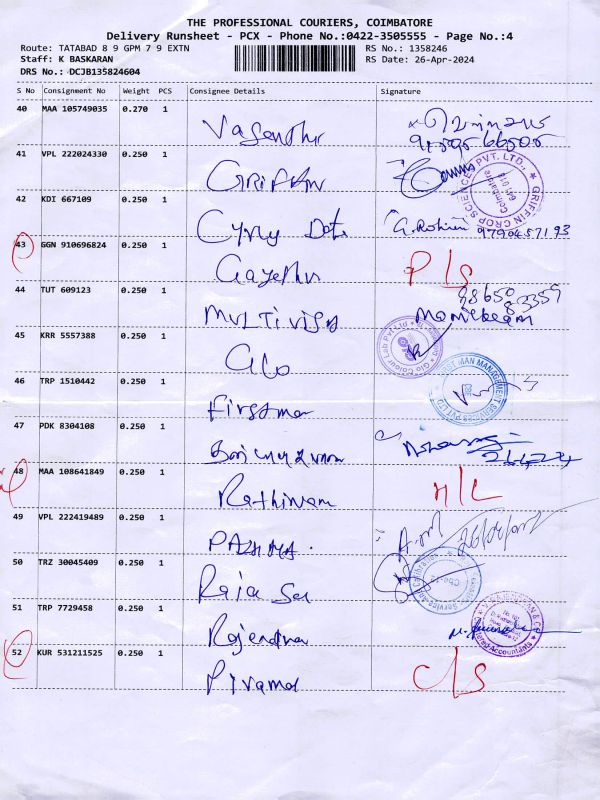 THE PROFESSIONAL COURIERS, COIMBATORE
Delivery Runsheet - PCX - Phone No.:0422-3505555 - Page No.:4
Route: TATABAD 8 9 GPM 7 9 EXTN RS No.: 1358246
Staff: K BASKARAN RS Date: 26-Apr-2024
DRS No.: DCJB135824604
S No Consignment No Weight PCS Consignee Details Signature
40 MAA 105749035 0.270 1
Vasanthr
41 VPL 222024330 0.250 1
GRIFFIN CROP SCIENCE PVT. LTD., Coimbatore
42 KDI 667109 0.250 1
9790457193
43 GGN 910696824 0.250 1
Gayethri P/S
44 TUT 609123 0.250 1
98650 83359
MULTIVISTA
45 KRR 5557388 0.250 1
Glo Glo Colour Lab Pvt Ltd
46 TRP 1510442 0.250 1
Firstman
47 PDK 8304108 0.250 1
48 MAA 108641849 0.250 1
Rathinam
49 VPL 222419489 0.250 1
PADMA.
50 TRZ 30045409 0.250 1
Raja
51 TRP 7729458 0.250 1
Rajendran
52 KUR 531211525 0.250 1
Piramal C/S